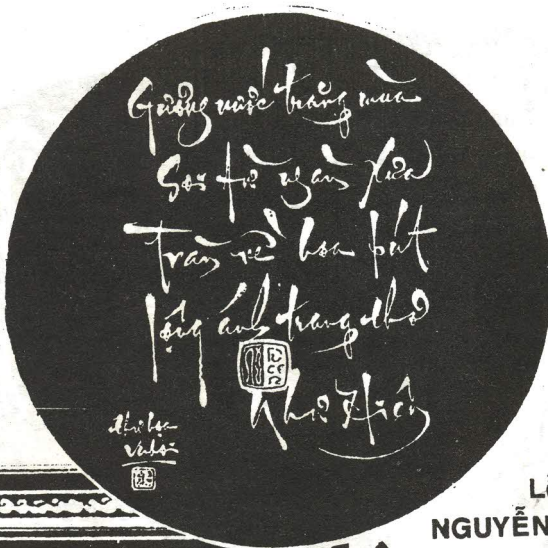 Gương nước trăng mùa
Soi từ ngàn xưa
Tràn về hoa bút
lộng ánh trang thơ
Như Hiên
thư họa
Vũ Hối
NGUYỄN